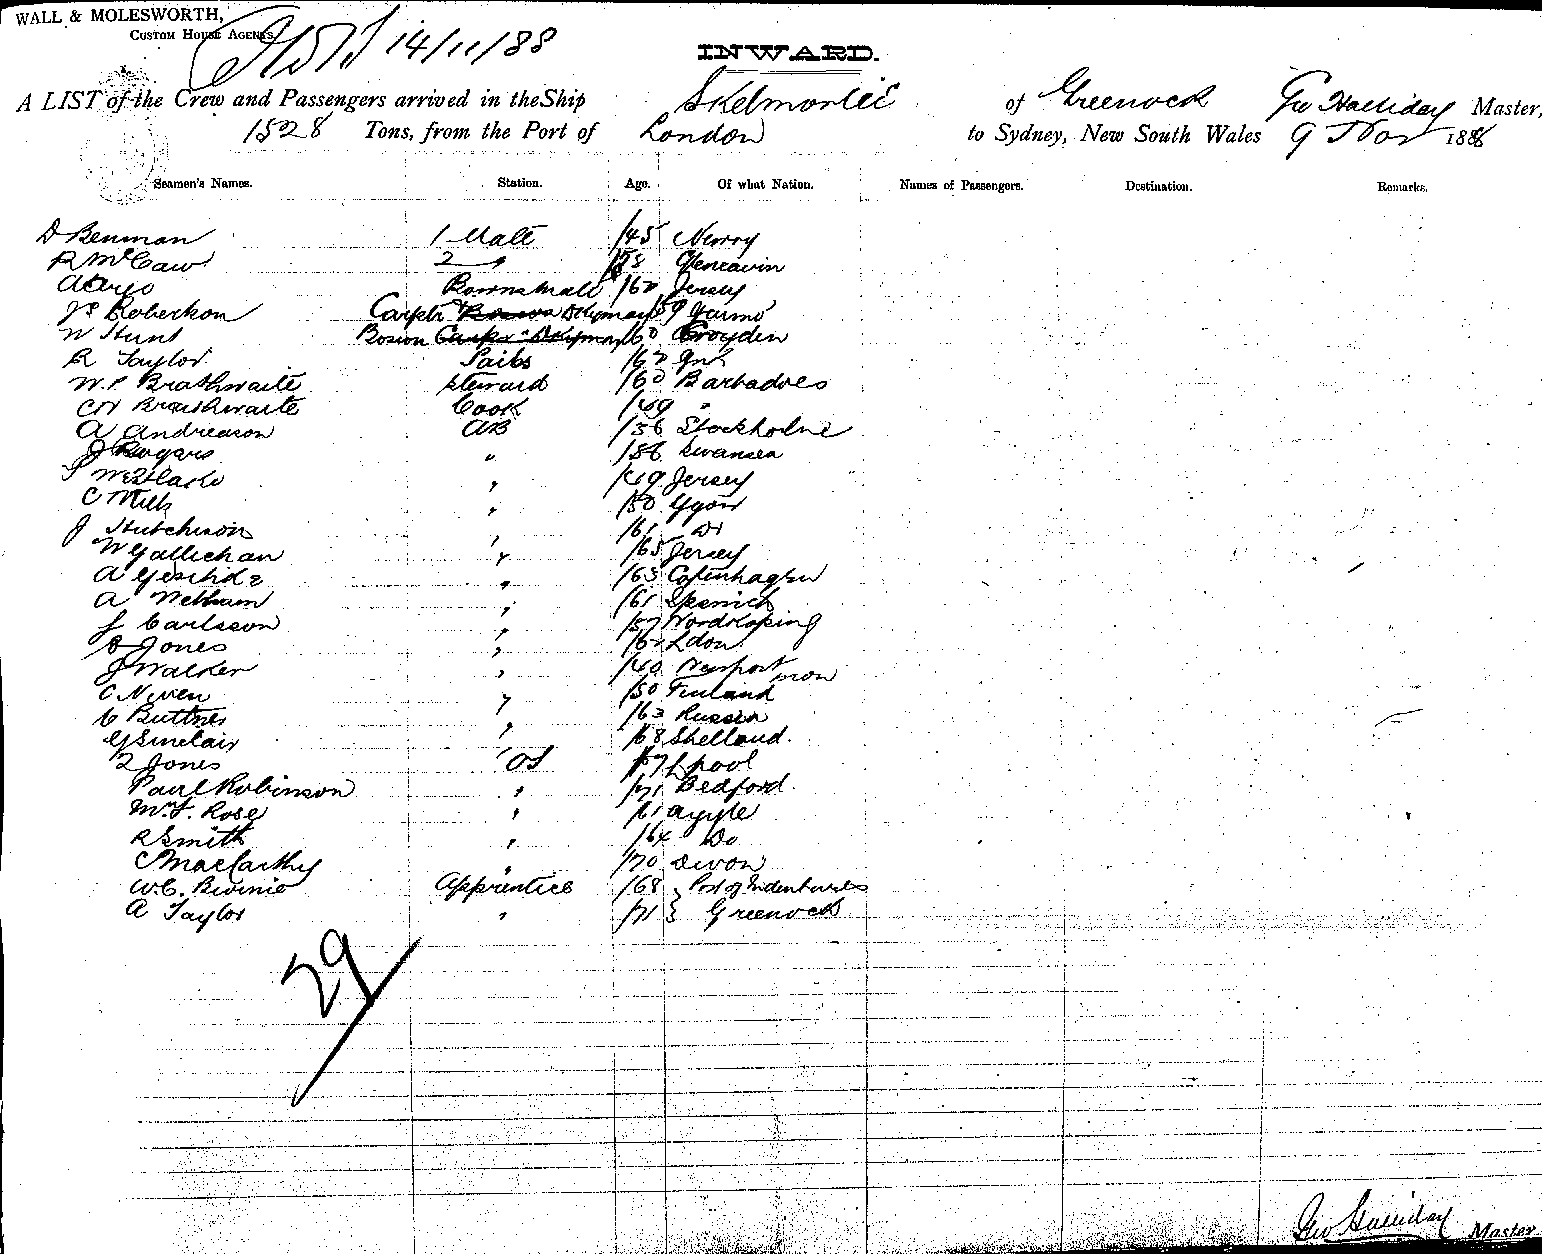 WALL & MOLESWORTH,
CUSTOM HOUSE AGENTS.
14/11/88
INWARD.
A LIST of the Crew and Passengers arrived in the Ship Skelmorlie of Greenock Geo Halliday Master,
1528 Tons, from the Port of London to Sydney, New South Wales 9 Nov 1888
Seamen's Names. Station. Age. Of what Nation. Names of Passengers. Destination. Remarks.
D Benman 1 Mate /45 Newry
R McCaw 2 "
/62 Jersey
Js Robertson Carptr
W Hunt Bosun /60 Croyden
R Taylor Sails /62
W.P. Brathwaite Steward /60 Barbadoes
CH Braithwaite Cook /49 "
A Andreason AB /56 Stockholme
J Rogers " /56 Swansea
" /49 Jersey
C Mills " /50
J Hutchison " /61 Do
W Gallichan " /65 Jersey
A " /63 Copenhagen
A " /61 Ipswich
J Carlsson " /57 Nordkoping
Jones " /62 Ldon
J Walker " /40 Newport
mon
C Niven " /50 Finland
C Buttner " /63 Russia
G Sinclair " /68 Shetland.
Jones OS /67 Lpool
Paul Robinson " /71 Bedford
Rose " /61 Argyle
R Smith " /64 Do
C MacCarthy " /70 Devon
W.C. Apprentice /68 } Port of Indentures
A Taylor " /71 } Greenock
29
Geo Halliday Master